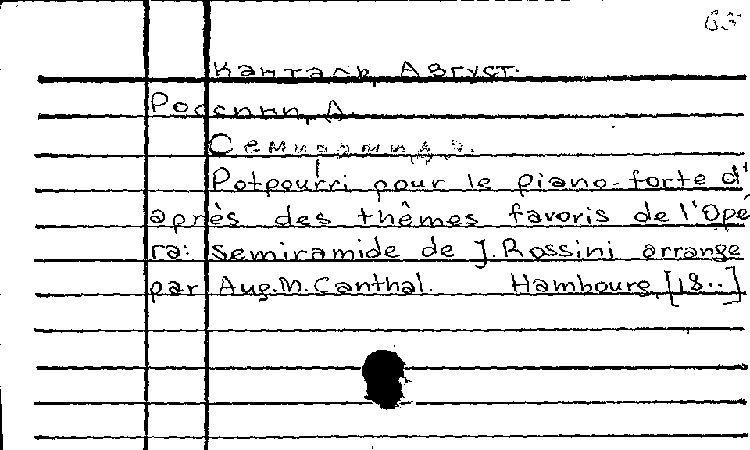 63
Канталь, Август.
Россини, Д.
Семирамида.
Potpourri pour le piano-forte d'
après des thêmes favoris de l'Opé
ra: Semiramide de J. Rossini arrange
par Aug. M. Canthal. Hambourg, [18..]